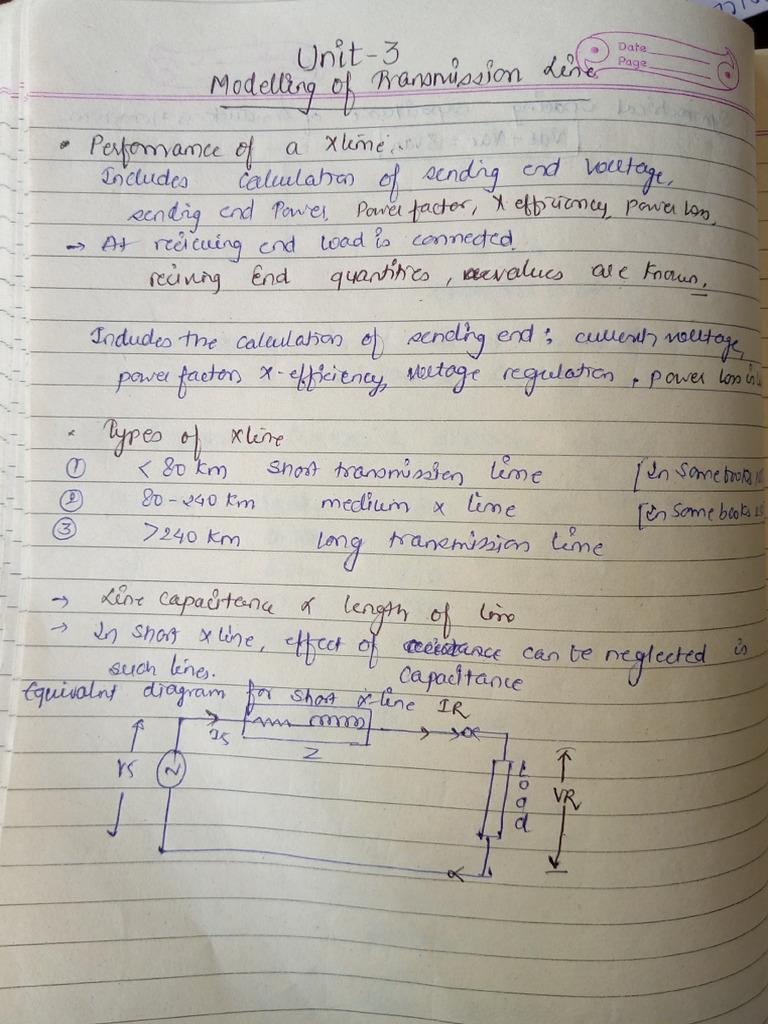 Unit-3
Date
Page
Modelling of Transmission Line
• Performance of a xline:.
Includes calculation of sending end voltage,
sendig end Power, Power factor, x efficiency, power loss,
→ At reciving end load is connected.
reciving End quantities, values are known.
Includes the calculation of sending end; current, voltage,
power factors x-efficiency, voltage regulation, power loss in
• Types of xline
① < 80 km short transmission line [In some books
② 80-240 km medium x line [in some books
③ >240 km long transmission line
→ Line capacitance α length of line
→ In short x line, effect of can be neglected in
such lines. capacitance
Equivalnt diagram for short x-line IR
Is
Z
VS
Load
VR